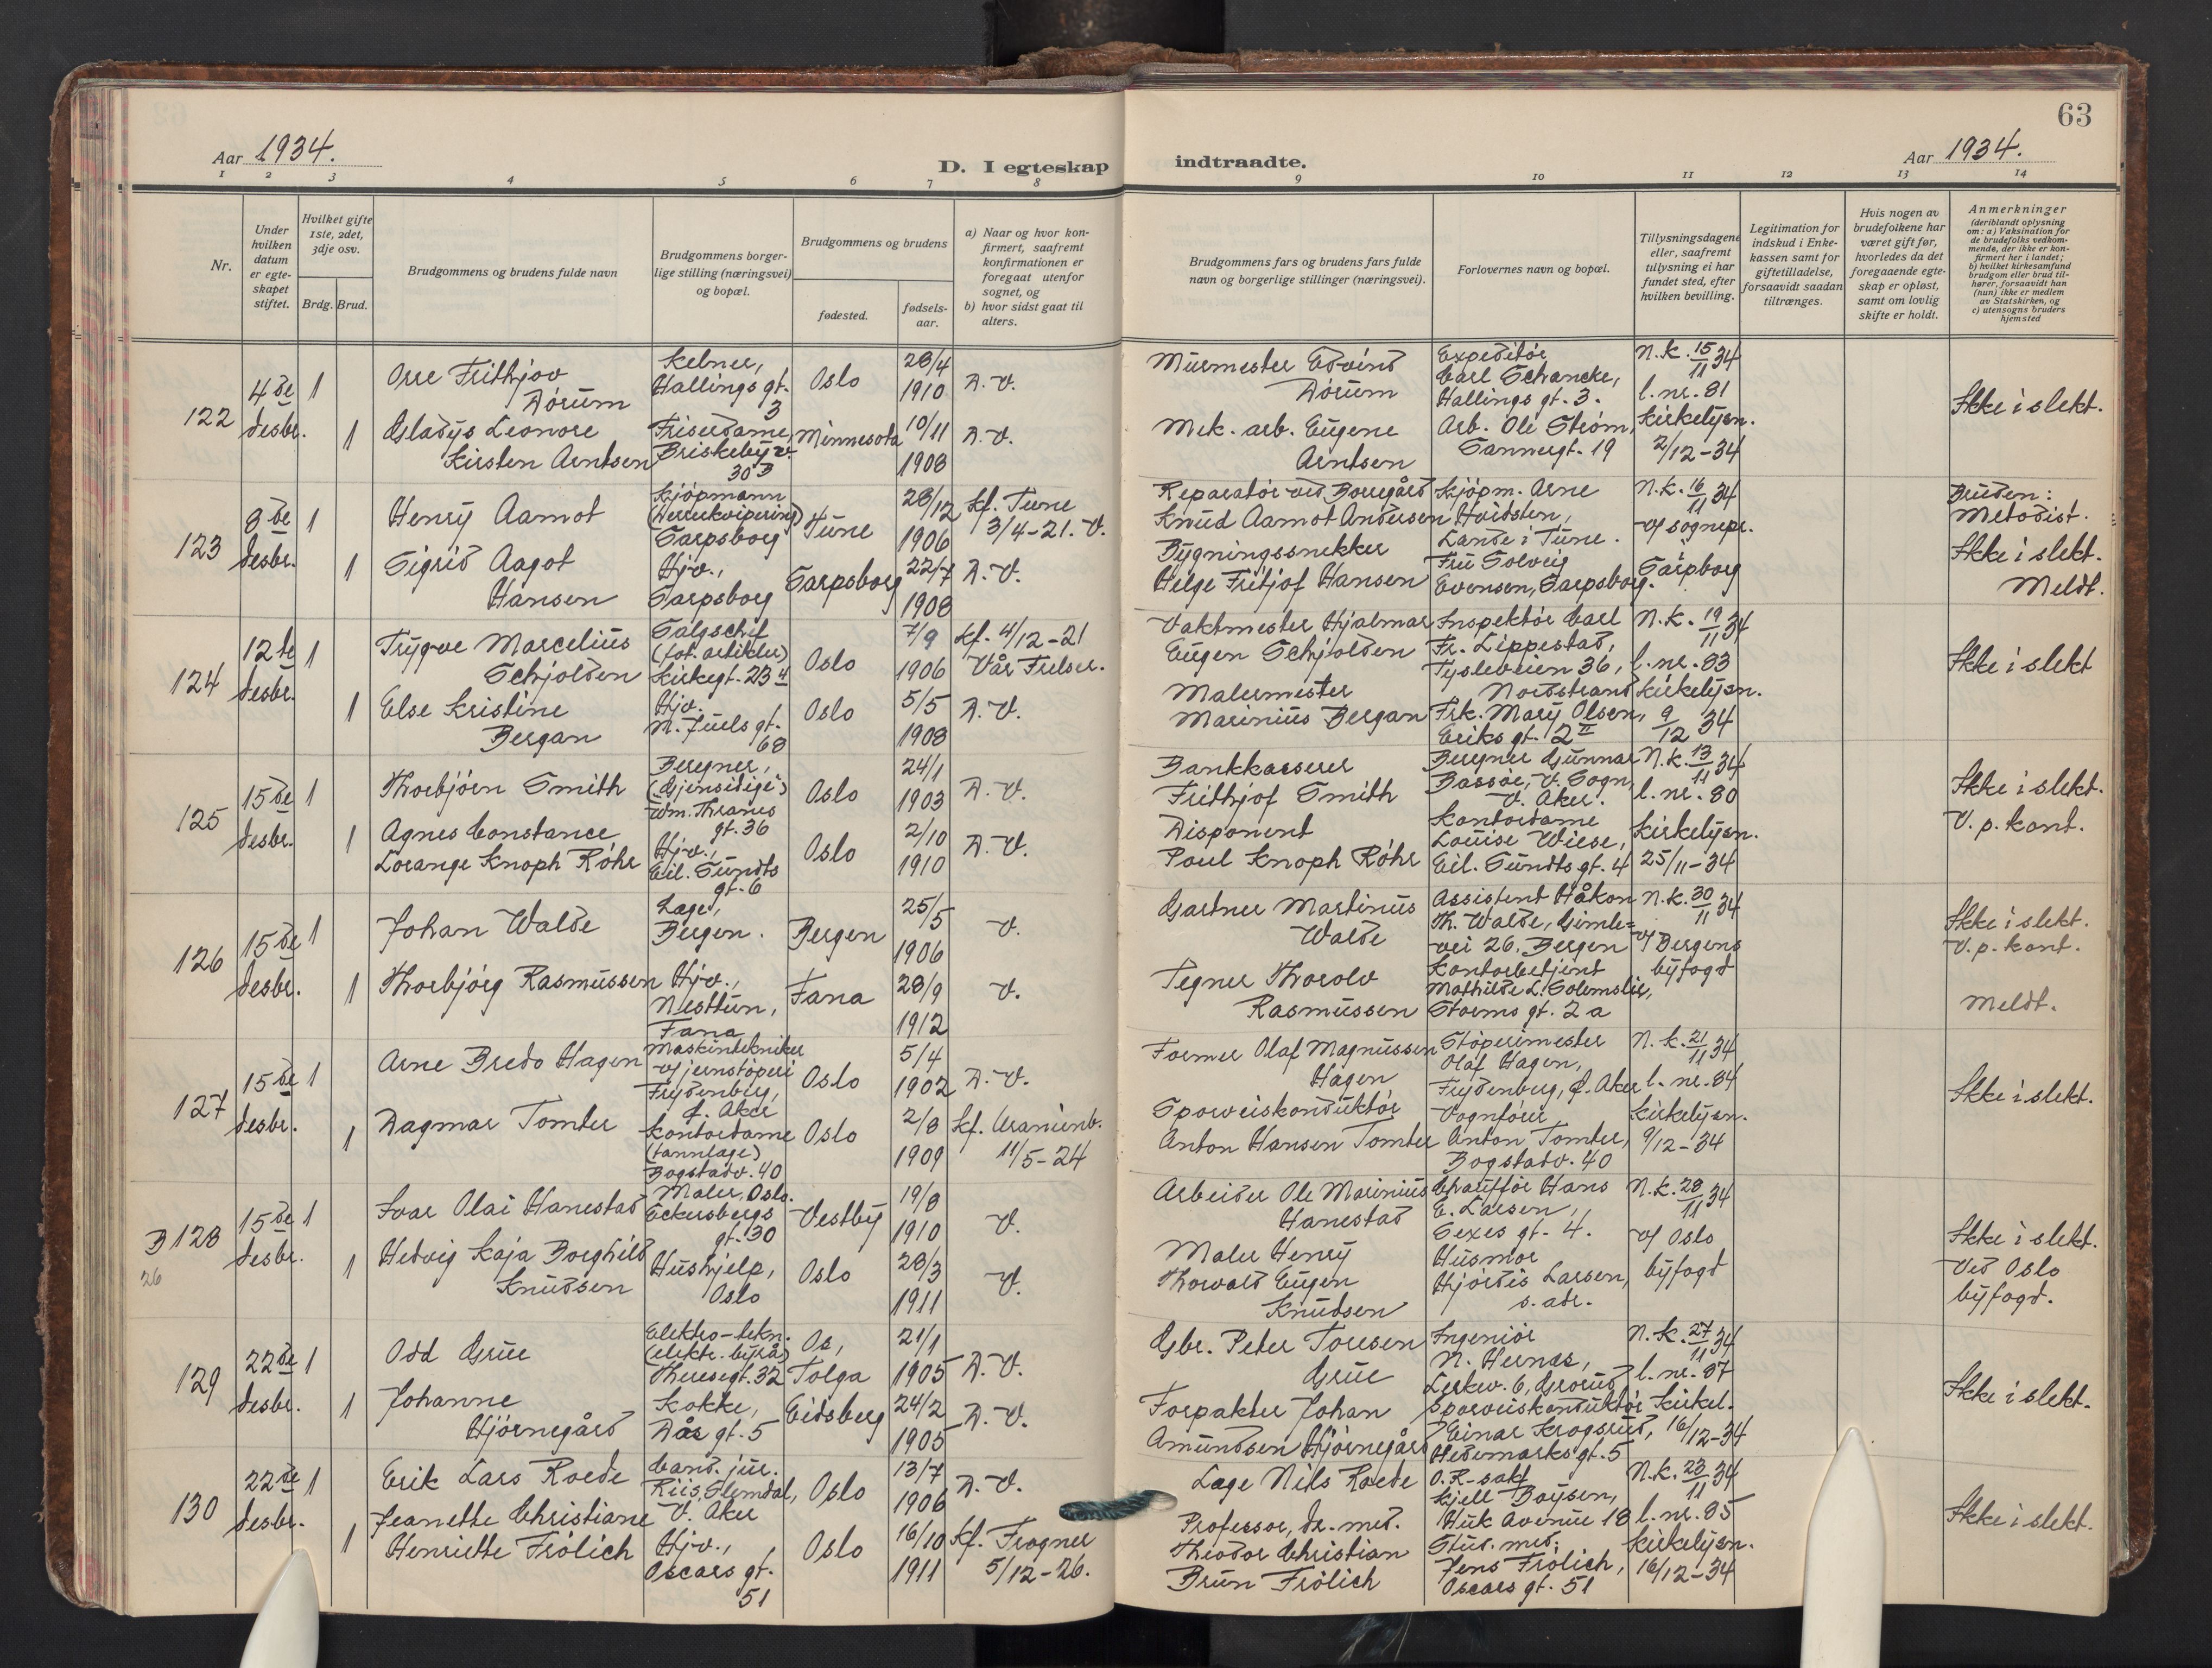 63
Aar 1934.
D. I egteskap indtraadte.
Aar 1934.
1 2 3 4 5 6 7 8 9 10 11 12 13 14
Nr.
Under hvilken datum er egteskapet stiftet.
Hvilket gifte 1ste, 2det, 3dje osv.
Brdg. Brud.
Brudgommens og brudens fulde navn
Brudgommens borgerlige stilling (næringsvei) og bopæl.
Brudgommens og brudens
fødested.
fødselsaar.
a) Naar og hvor konfirmert, saafremt konfirmationen er foregaat utenfor sognet, og
b) hvor sidst gaat til alters.
Brudgommens fars og brudens fars fulde navn og borgerlige stillinger (næringsvei).
Forlovernes navn og bopæl.
Tillysningsdagene eller, saafremt tillysning ei har fundet sted, efter hvilken bevilling.
Legitimation for indskud i Enkekassen samt for giftetilladelse, forsaavidt saadan tiltrænges.
Hvis nogen av brudefolkene har været gift før, hvorledes da det foregaaende egteskap er opløst, samt om lovlig skifte er holdt.
Anmerkninger
(deriblandt oplysning om: a) Vaksination for de brudefolks vedkommende, der ikke er konfirmert her i landet; b) hvilket kirkesamfund brudgom eller brud tilhører, forsaavidt han (hun) ikke er medlem av Statskirken, og c) utensogns bruders hjemsted
122
4de desbr.
1
Orre Frithjov Dörum
Kelner, Hallings gt. 3
Oslo
28/4 1910
D. V.
Murmester Edvind Dörum
Expeditör Carl Schancke, Hallings gt. 3.
N.k. 15/11 34
l. nr. 81
1
Gladys Leonore Kirsten Arntsen
Friserdame, Briskebyv. 30B
Minnesota
10/11 1908
D. V.
Mek. arb. Eugene Arntsen
Arb. Ole Ström, Sannergt. 19
Kirkelysn. 2/12-34
Ikke i slekt.
123
8de desbr.
1
Henry Aamot
Kjöpmann (Herrekvipering) Sarpsborg
Tune
28/12 1906
kf. Tune 3/4-21. V.
Reparatör ved Borregård Knud Aamot Andersen
Kjöpm. Arne Hvidsten, Lande i Tune.
N.k. 16/11 34
v/ sognepr.
Sarpborg
1
Sigrid Aagot Hansen
Hjv., Sarpsborg
Sarpsborg
22/7 1908
D. V.
Bygningssnekker Helge Fritjof Hansen
Fru Solveig Evensen, Sarpsborg.
Bruden: Metodist.
Ikke i slekt.
Meldt.
124
12te desbr.
1
Trygve Marcelius Schjolden
Salgschef (fot. artikler) Kirkegt. 23 4
Oslo
7/9 1906
kf. 4/12-21 Vår Frelser.
Vaktmester Hjalmar Eugen Schjolden
Inspektör Carl Fr. Lippestad, Tyslevveien 36, Nordstrand
N.k. 19/11 34
l. nr. 83
1
Else Kristine Bergan
Hjv. N. Juels gt. 68
Oslo
5/5 1908
D. V.
Malermester Marinius Bergan
Frk. Mary Olsen, Eriks gt. 12 II
Kirkelysn. 9/12 34
Ikke i slekt
125
15de desbr.
1
Thorbjörn Smith
Beregner, (Gjensidige) Wm. Thranes gt. 36
Oslo
24/1 1903
D. V.
Bankkasserer Frithjof Smith
Beregner Gunnar Bassöe, V. Sogn, V. Aker.
N.k. 13/11 34
l. nr. 80
1
Agnes Constance Lorange Knoph Röhr
Hjv., Eil. Sundts gt. 6
Oslo
2/10 1910
D. V.
Disponent Poul Knoph Röhr
Kontordame Louise Wiese, Eil. Sundts gt. 4
Kirkelysn. 25/11-34
Ikke i slekt.
V. p. kont.
126
15de desbr.
1
Johan Walde
Læge, Bergen.
Bergen
25/5 1906
V.
Gartner Martinius Walde
Assistent Håkon Th. Walde, Gimlevei 26. Bergen
N.k. 30/11 34
v/ Bergens byfogd
1
Thorbjörg Rasmussen
Hjv., Nesttun, Fana
Fana
28/9 1912
V.
Tegner Thorolv Rasmussen
Kontorbetjent Mathilde L. Solemslie, Storms gt. 2a
Ikke i slekt.
V. p. kont.
Meldt.
127
15de desbr.
1
Arne Bredo Hagen
Maskintekniker v/ jernstöperi Frydenberg, Ö. Aker
Oslo
5/4 1902
D. V.
Former Olaf Magnussen Hagen
Stöperimester Olaf Hagen, Frydenberg, Ö. Aker
N.k. 21/11 34
l. nr. 84
1
Dagmar Tomter
Kontordame (tannlæge) Bogstadv. 40
Oslo
2/8 1909
kf. Uranienb. 11/5-24
Sporveiskonduktör Anton Hansen Tomter
Vognförer Anton Tomter, Bogstadv. 40
Kirkelysn. 9/12-34
Ikke i slekt.
B 128
26
15de desbr.
1
Ivar Olai Hanestad
Maler, Oslo. Eckersbergs gt. 30
Vestby
19/8 1910
V.
Arbeider Ole Marinius Hanestad
Chaufför Hans E. Larsen, Sexes gt. 4.
N.k. 28/11 34
v/ Oslo byfogd
1
Hedvig Kaja Borghild Knudsen
Hushjelp, Oslo
Oslo
28/3 1911
V.
Maler Henry Thorvald Eugen Knudsen
Husmor Hjördis Larsen, s. adr.
Ikke i slekt.
Ved Oslo byfogd.
129
22de desbr.
1
Odd Grue
Elektro-tekn. (elektr. byrå) Theresegt. 32
Os, Tolga
21/1 1905
D. V.
Gbr. Peter Toresen Grue
Ingeniör N. Hernæs, Lerkev. 6, Grorud
N.k. 27/11 34
l. nr. 87
1
Johanne Hjörnegård
Kokke, Dås gt. 5
Eidsberg
24/2 1905
D. V.
Forpakter Johan Amundsen Hjörnegård
Sporveiskonduktör Einar Krogsrud, Hedemarks gt. 5
Kirkel. 16/12-34
Ikke i slekt.
130
22de desbr.
1
Erik Lars Roede
Cand. jur. Riis, Slemdal, V. Aker
Oslo
13/7 1906
D. V.
Læge Nils Roede
O.R-sakf. Kjell Boysen, Huk Avenue 18
N.k. 23/11 34
l. nr. 85
1
Jeanette Christiane Henriette Frölich
Hjv., Oscars gt. 51
Oslo
16/10 1911
kf. Frogner 5/12-26.
Professor, dr. med. Theodor Christian Brun Frölich
Stud. med. Jens Frölich, Oscars gt. 51
Kirkelysn. 16/12-34
Ikke i slekt.